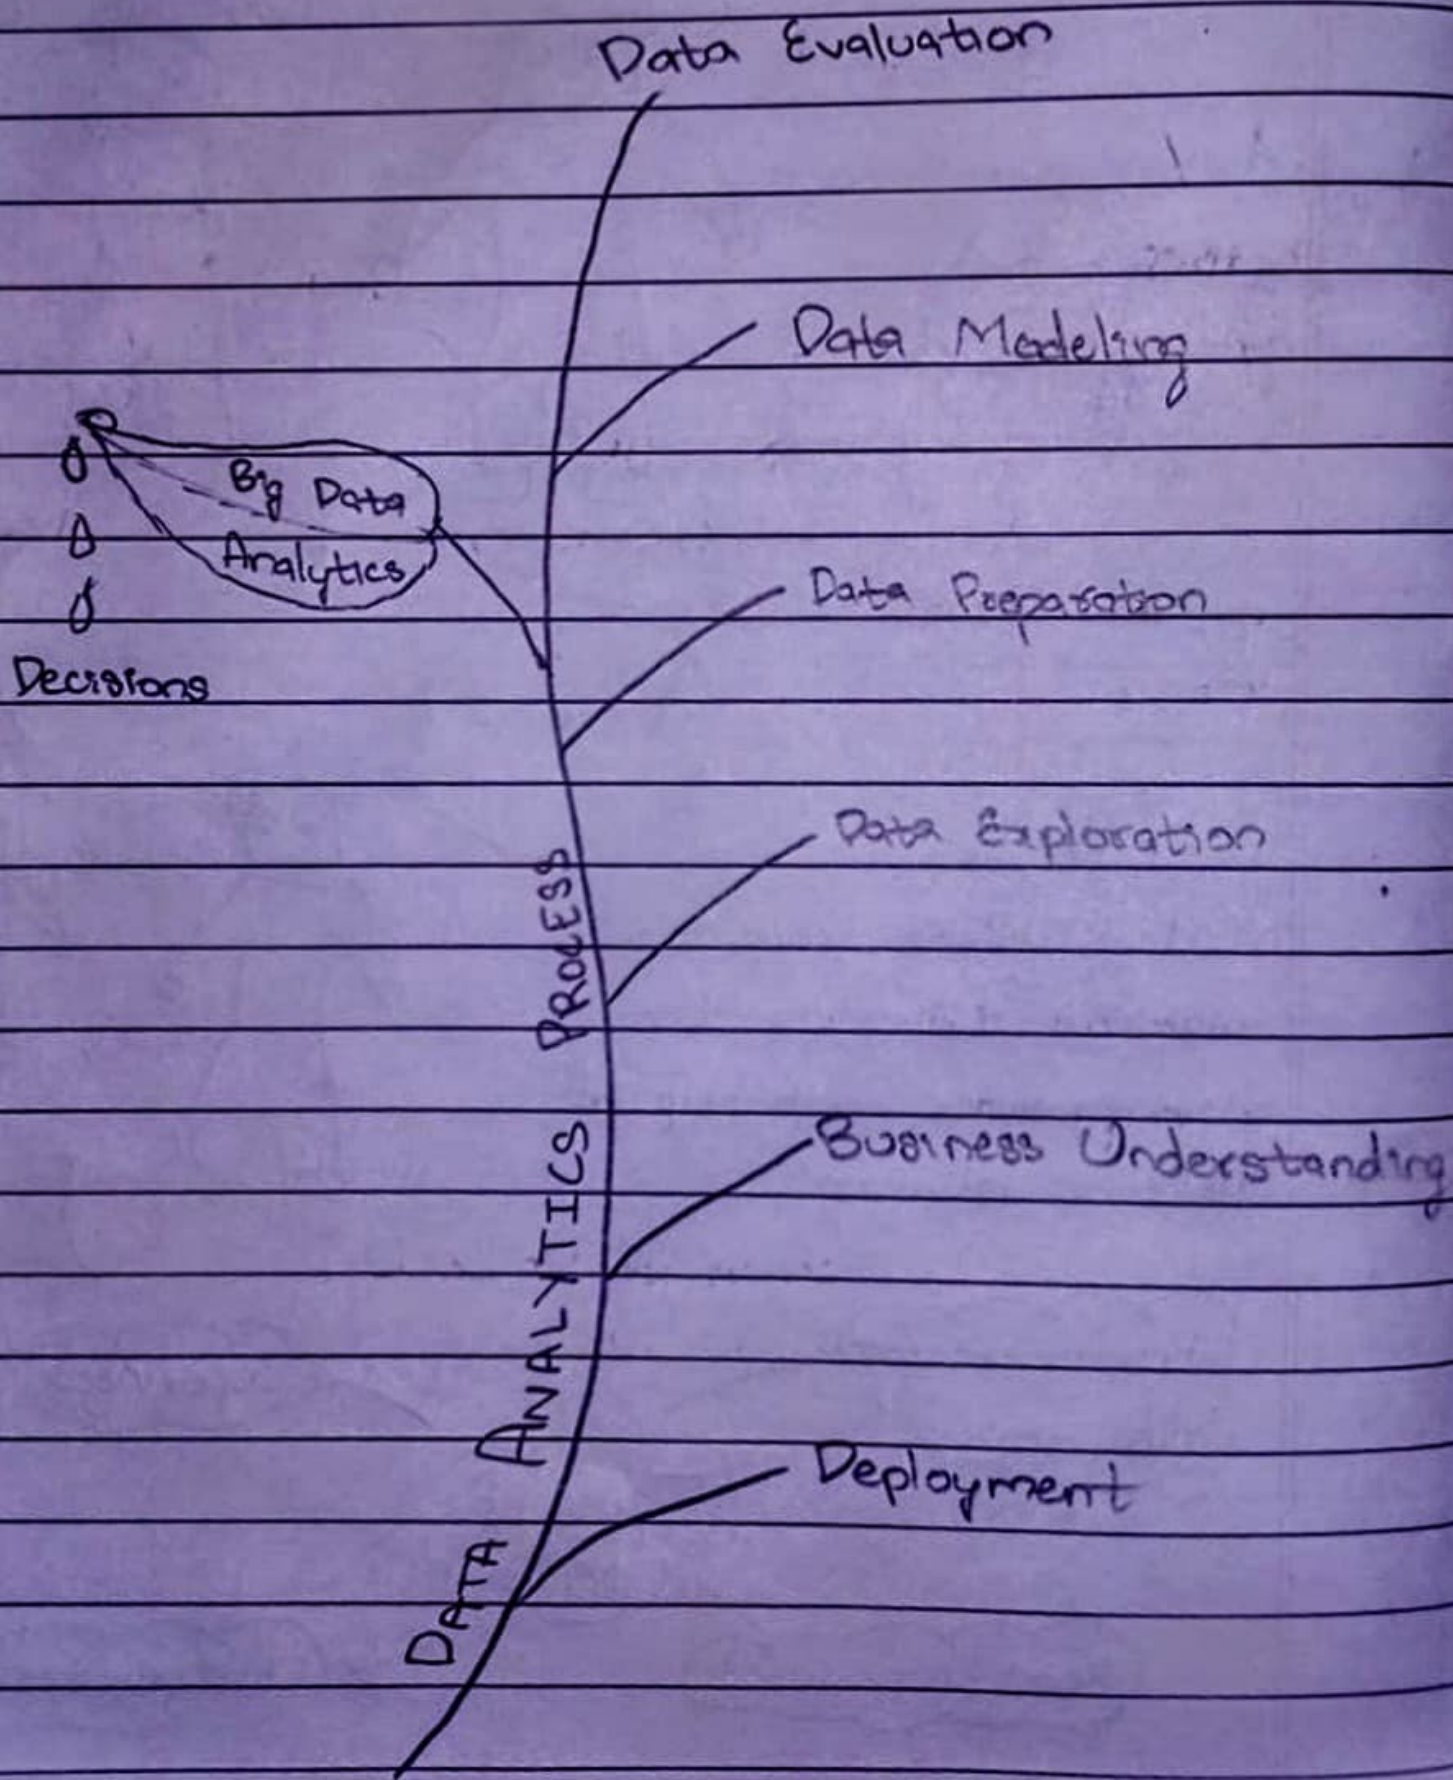 Data Evaluation
Data Modeling
Big Data
Analytics
Data Preparation
Decisions
Data Exploration
Business Understanding
Deployment
DATA ANALYTICS PROCESS